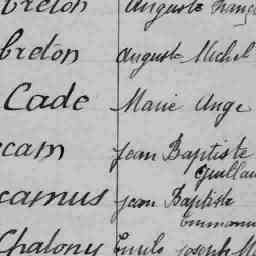 breton Auguste Franç
breton Auguste Michel
Cade Marie Ange
cam Jean Baptiste
Guillau
camus Jean Baptiste
Emmanu
Chalony Emile Joseph M